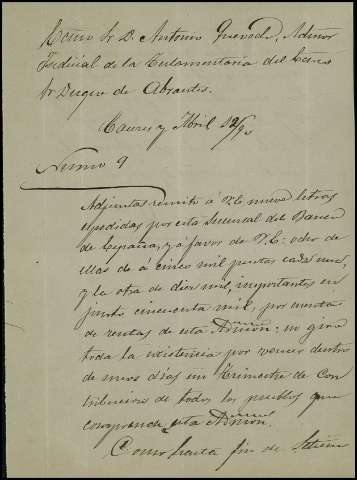 Excmo Sr. D. Antonio Quevedo, Admor
Judicial de la Testamentaría del Excmo
Sr Duque de Abrantes.
Caceres y Abril 12/90
Numo 9
Adjuntas remito á V.E. nueve letras
espedidas por esta Sucursal del Banco
de España, y á favor de V.E: ocho de
ellas de á cinco mil pesetas cada una,
y la otra de diez mil, importantes en
junto cincuenta mil, por cuenta
de rentas de esta Admon: no giro
toda la existencia por vencer dentro
de unos días un Trimestre de Con
tribucion de todos los pueblos que
comprende esta Admon.
Como hasta fin de Setiem